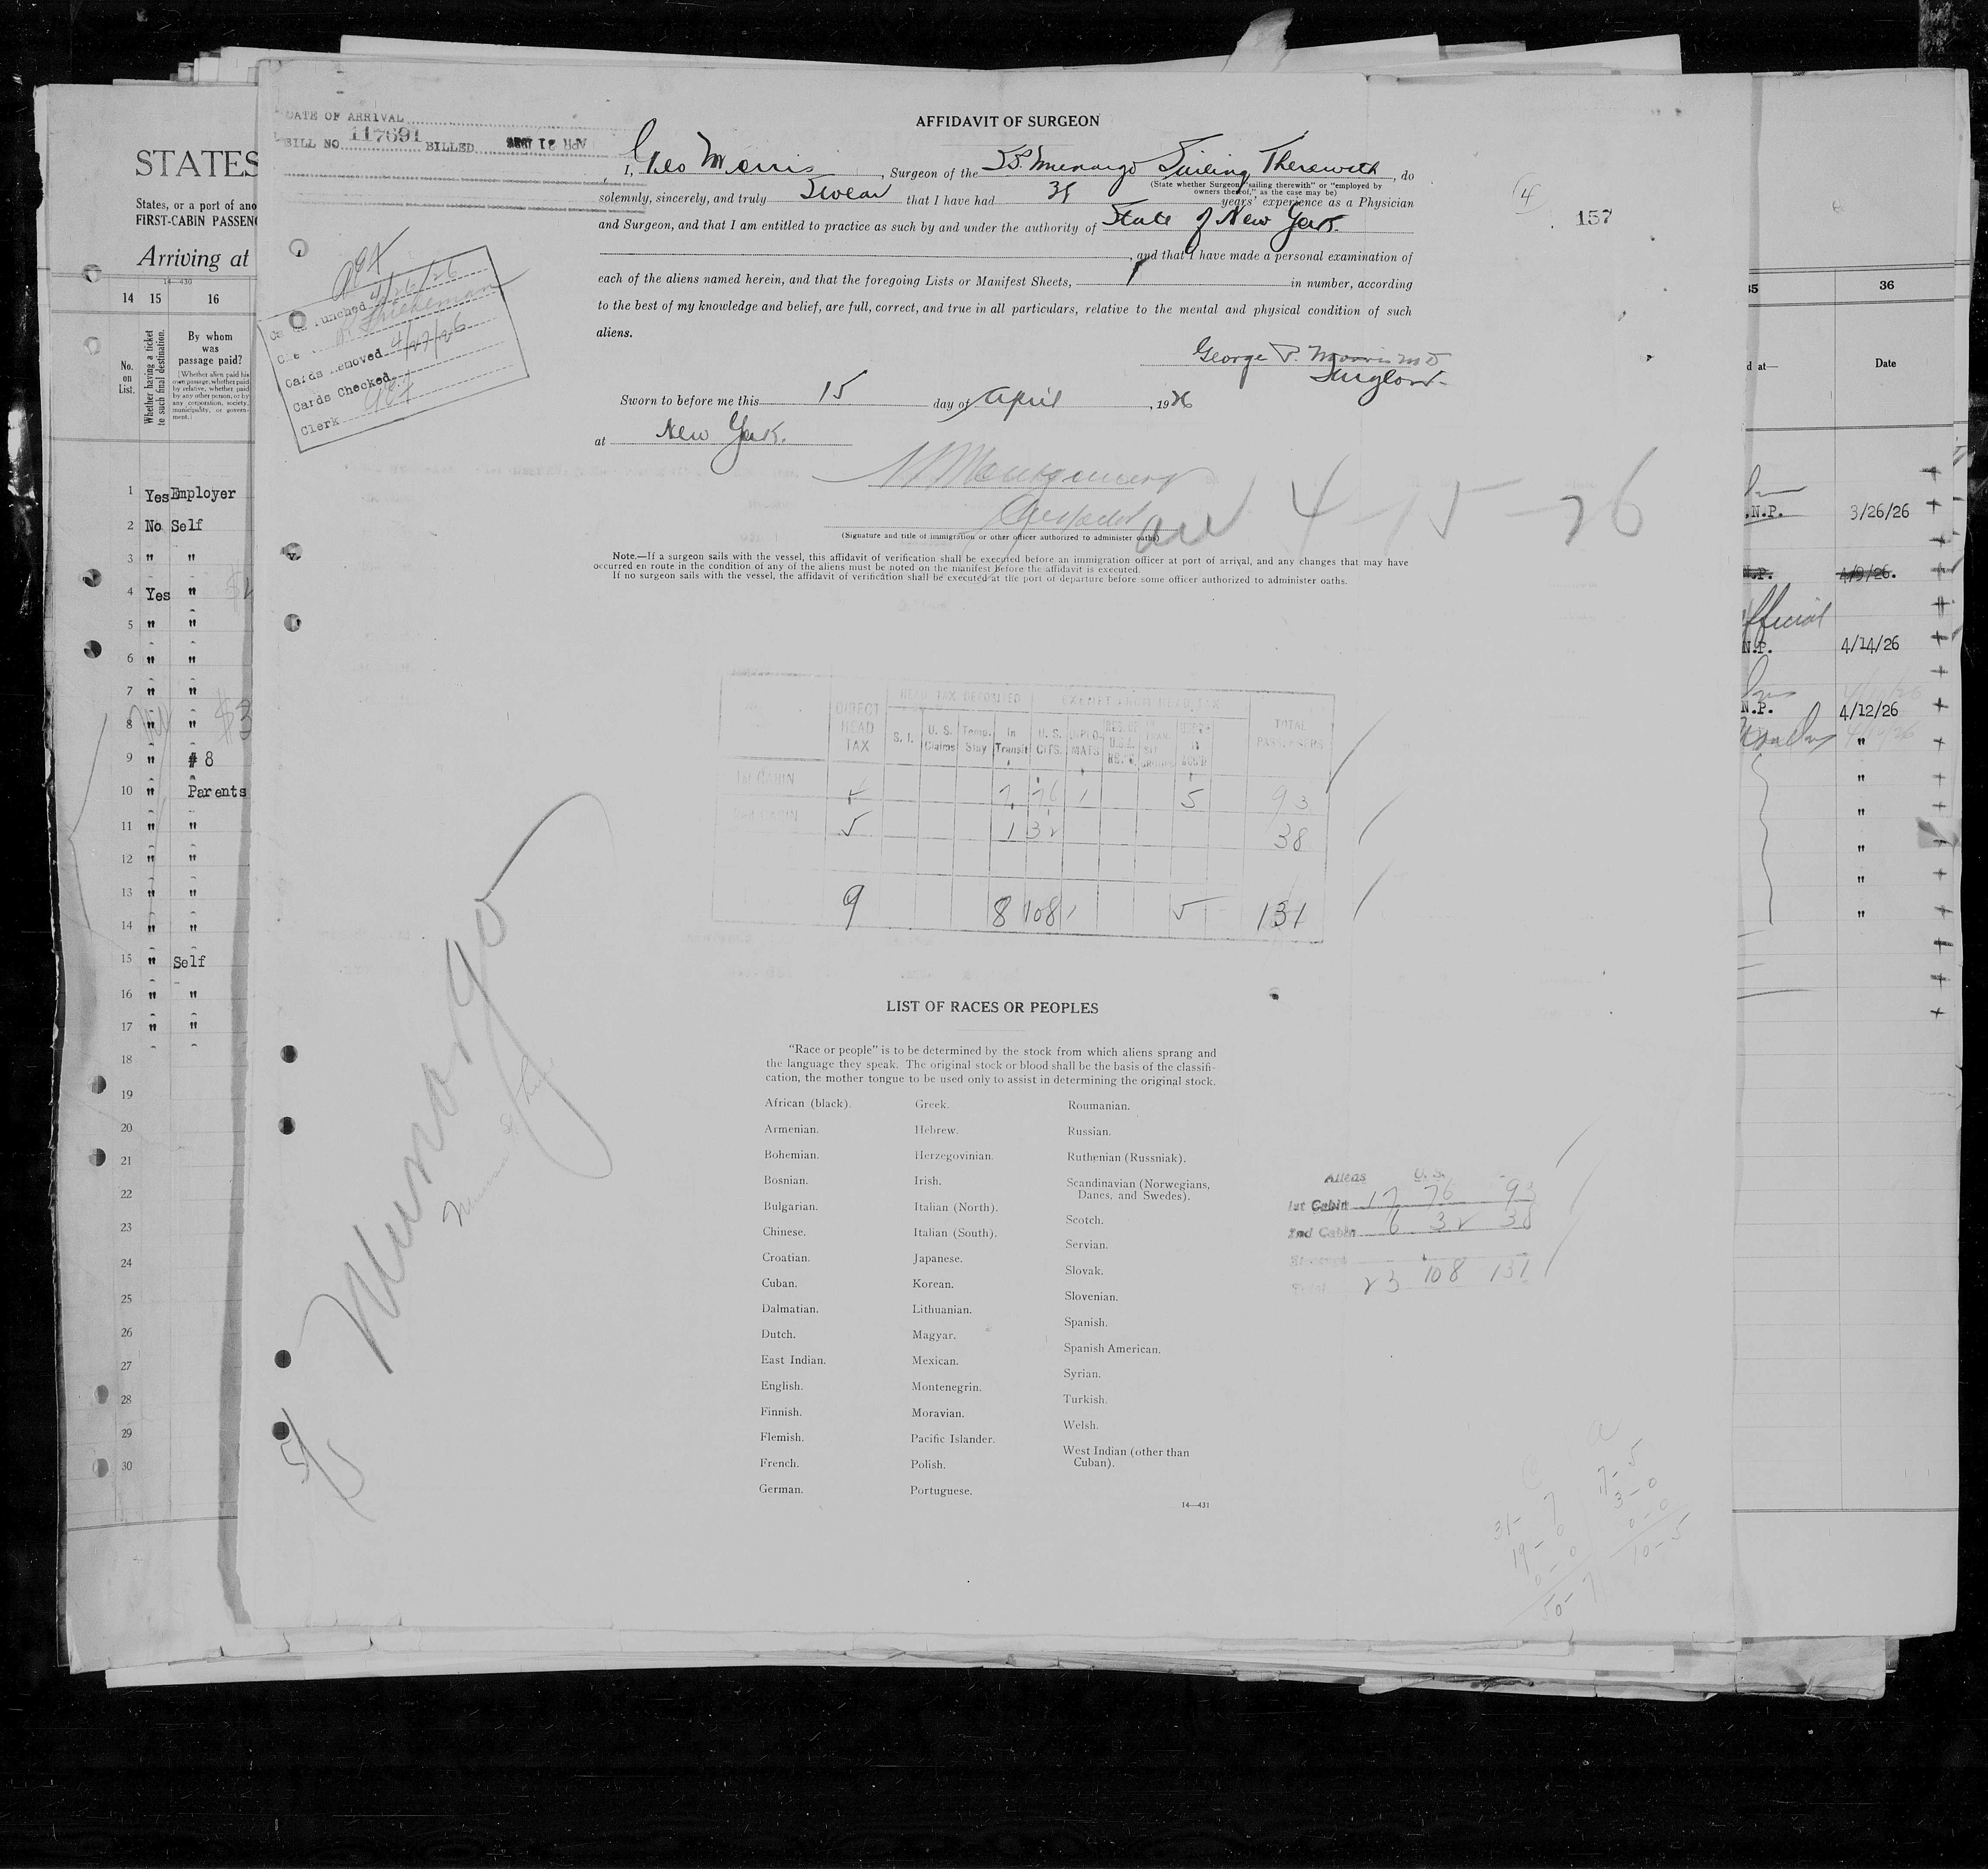 DATE OF ARRIVAL
BILL NO. 117691 BILLED
Cards Punched 4/26/26
Cards Removed 4/27/26
Cards Checked
Clerk
AFFIDAVIT OF SURGEON
I, Geo Morris, Surgeon of the SS Munargo Sailing Therewith, do
(State whether Surgeon "sailing therewith" or "employed by
owners thereof," as the case may be)
solemnly, sincerely, and truly Swear that I have had years' experience as a Physician
and Surgeon, and that I am entitled to practice as such by and under the authority of State of New York
, and that I have made a personal examination of
each of the aliens named herein, and that the foregoing Lists or Manifest Sheets, in number, according
to the best of my knowledge and belief, are full, correct, and true in all particulars, relative to the mental and physical condition of such
aliens.
George P. Morris MD
Surgeon
Sworn to before me this 15 day of April, 1926
at New York.
Montgomery
4-15-26
(Signature and title of immigration or other officer authorized to administer oaths)
Note.—If a surgeon sails with the vessel, this affidavit of verification shall be executed before an immigration officer at port of arrival, and any changes that may have
occurred en route in the condition of any of the aliens must be noted on the manifest before the affidavit is executed.
If no surgeon sails with the vessel, the affidavit of verification shall be executed at the port of departure before some officer authorized to administer oaths.
4
157
HEAD TAX DEPOSITED EXEMPT FROM HEAD TAX
DIRECT HEAD TAX S. I. U. S. Claims Temp. Stay In Transit U. S. CITS. DIPLO-MATS TOTAL PASSENGERS
1st CABIN 4 7 76 1 5 93
2nd CABIN 5 1 32 38
9 8 108 1 5 131
Munargo
LIST OF RACES OR PEOPLES
"Race or people" is to be determined by the stock from which aliens sprang and
the language they speak. The original stock or blood shall be the basis of the classifi-
cation, the mother tongue to be used only to assist in determining the original stock.
African (black). Greek. Roumanian.
Armenian. Hebrew. Russian.
Bohemian. Herzegovinian. Ruthenian (Russniak).
Bosnian. Irish. Scandinavian (Norwegians,
Danes, and Swedes).
Bulgarian. Italian (North). Scotch.
Chinese. Italian (South). Servian.
Croatian. Japanese. Slovak.
Cuban. Korean. Slovenian.
Dalmatian. Lithuanian. Spanish.
Dutch. Magyar. Spanish American.
East Indian. Mexican. Syrian.
English. Montenegrin. Turkish.
Finnish. Moravian. Welsh.
Flemish. Pacific Islander. West Indian (other than
Cuban).
French. Polish.
German. Portuguese.
14—431
Aliens U. S.
1st Cabin 17 76 93
2nd Cabin 6 32 38
Steerage
Total 23 108 131
C
31- 7
19- 0
0- 0
50- 7
a
7- 5
3- 0
0- 0
10- 5
STATES
States, or a port of ano
FIRST-CABIN PASSENG
Arriving at
14—430
14 15 16
No. on List.
Whether having a ticket to such final destination.
By whom was passage paid?
(Whether alien paid his own passage, whether paid by relative, whether paid by any other person, or by any corporation, society, municipality, or government.)
1 Yes Employer
2 No Self
3 " "
4 Yes "
5 " "
6 " "
7 " "
8 " " $3
9 " # 8
10 " Parents
11 " "
12 " "
13 " "
14 " "
15 " Self
16 " "
17 " "
18
19
20
21
22
23
24
25
26
27
28
29
30
35 36
d at— Date
.N.P. 3/26/26
N.P. 4/9/26.
fficial
N.P. 4/14/26
N.P. 4/12/26
"
"
"
"
"
"